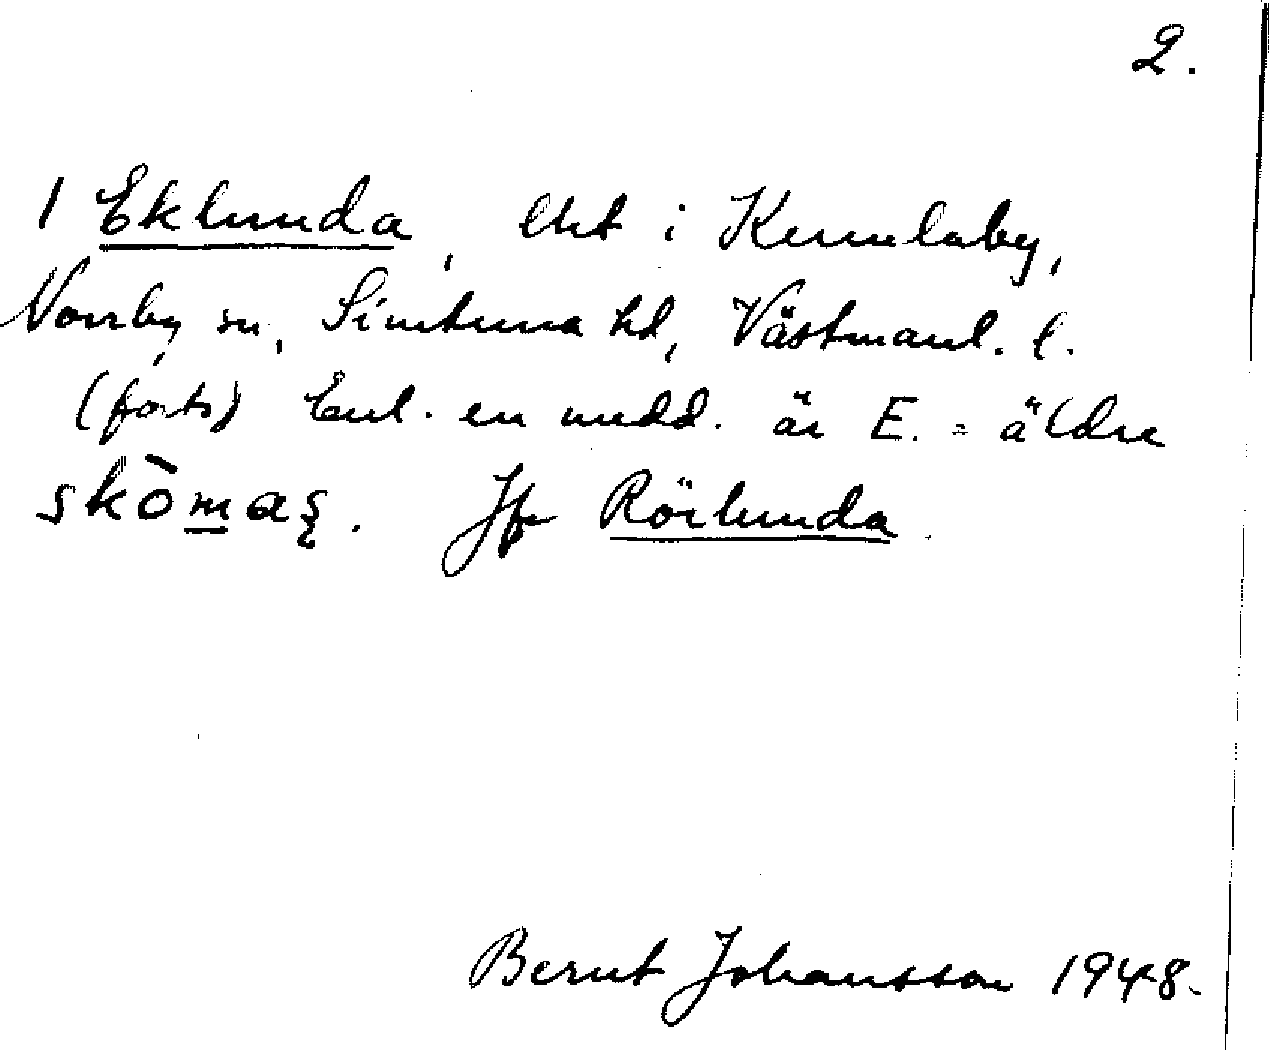 2.
1 Eklunda, lht i Kumlaby,
Norrby sn, Simtuna hd, Västmanl. l.
(forts) Enl. en medd. är E. = äldre
skòmas. Jfr Rörlunda.
Bernt Johansson 1948.